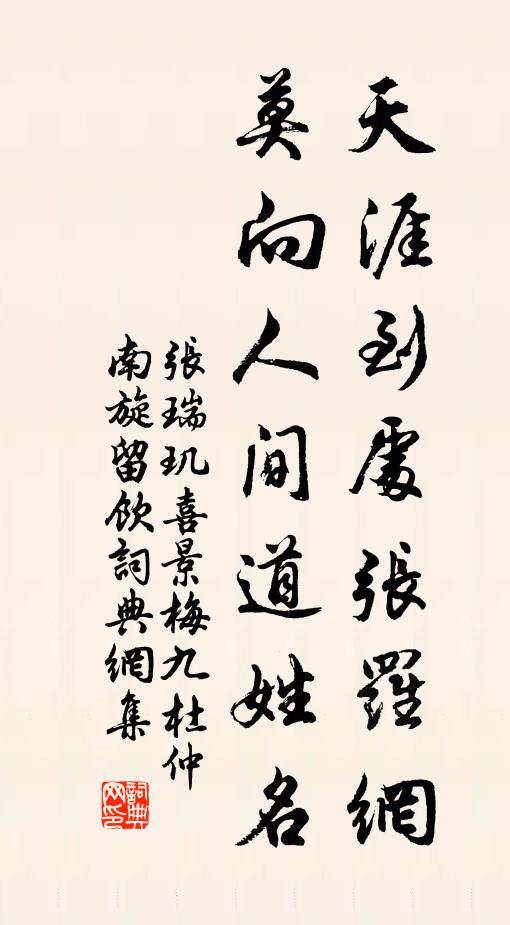 天涯到處張羅網
莫向人间道姓名
張瑞玑喜景梅九杜仲
南旋留飲詞典網集
詞典网印